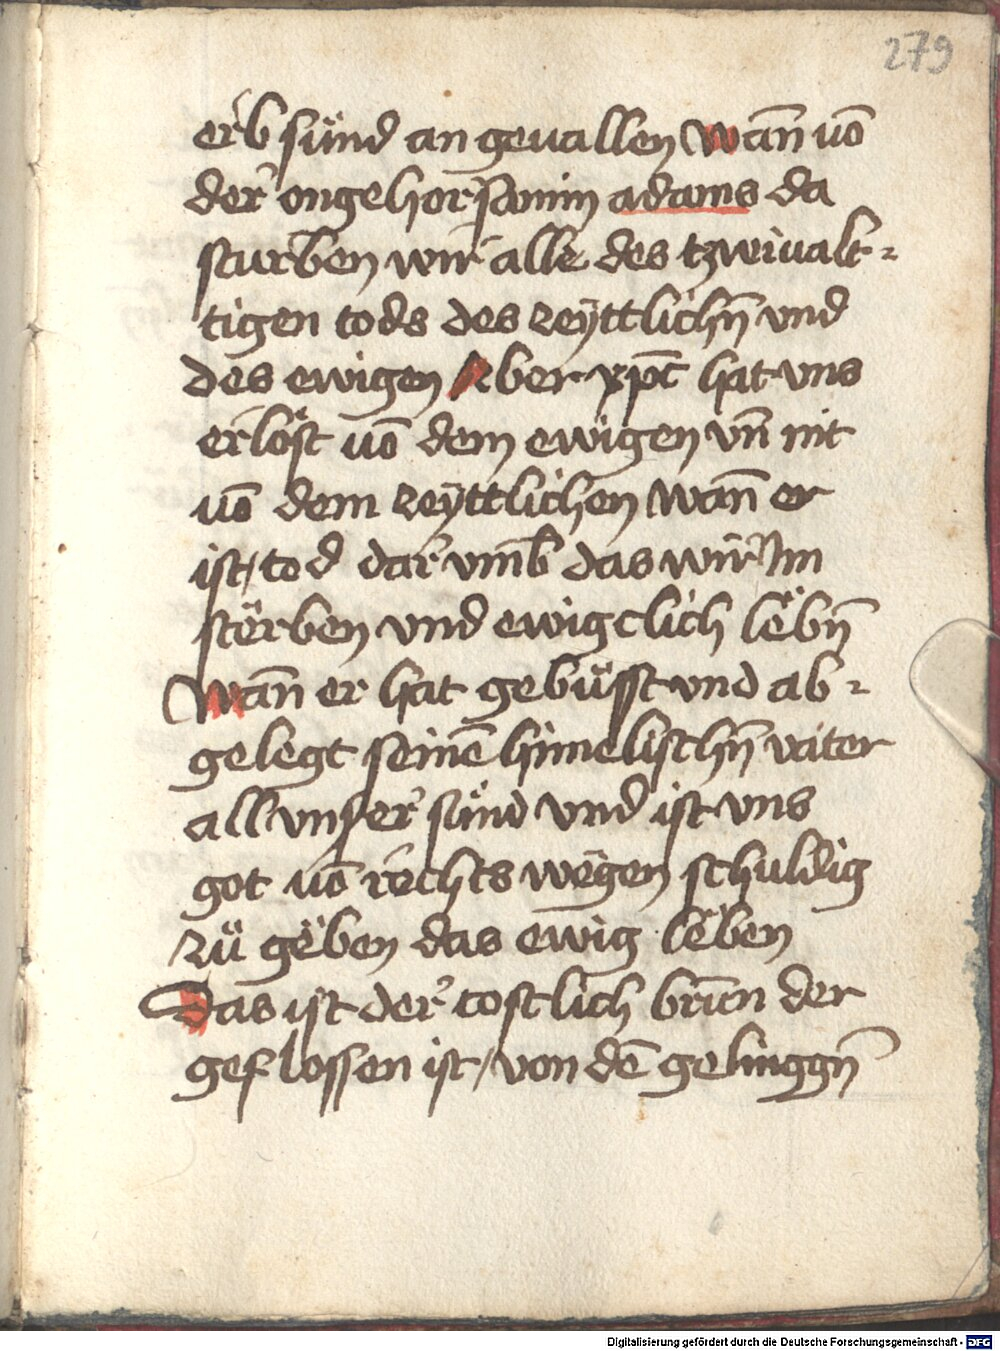 279
erb sünd an geuallen Wañ uō
der ongehorsamin adams da
sturben wir alle des tzwiualt⸗
tigen tods des zeÿttlichñ vnd
des ewigen Aber xp̄c hat vns
erlöst uō dem ewigen vñ nit
uō dem zeÿttlichen Wañ er
ist / tod dar vmb das wir Im
stërben vnd ewigclich lëbñ
Wañ er hat gebüsst vnd ab⸗
gelegt seinē himelischñ vater
all vnser sünd vnd ist vns
got uō rechts wëgen schuldig
zü gëben das ewig lëben
Das ist der costlich brūn der
geflossen ist / von dē gelinggñ
Digitalisierung gefördert durch die Deutsche Forschungsgemeinschaft - DFG